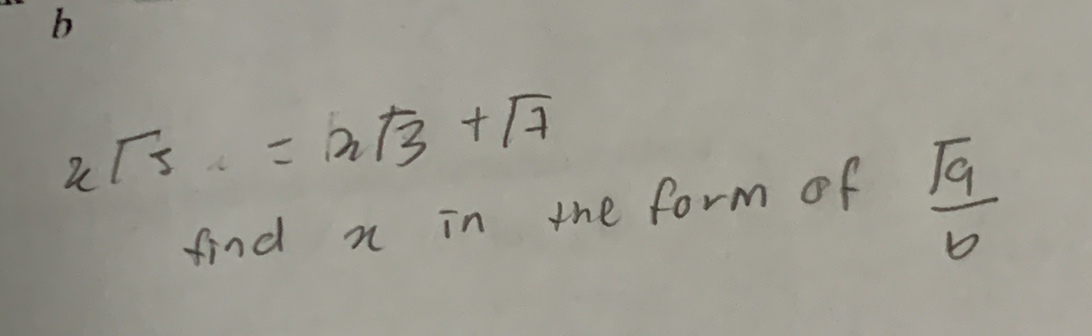 b
x√5 = x√3 + √7
find x in the form of √a/b